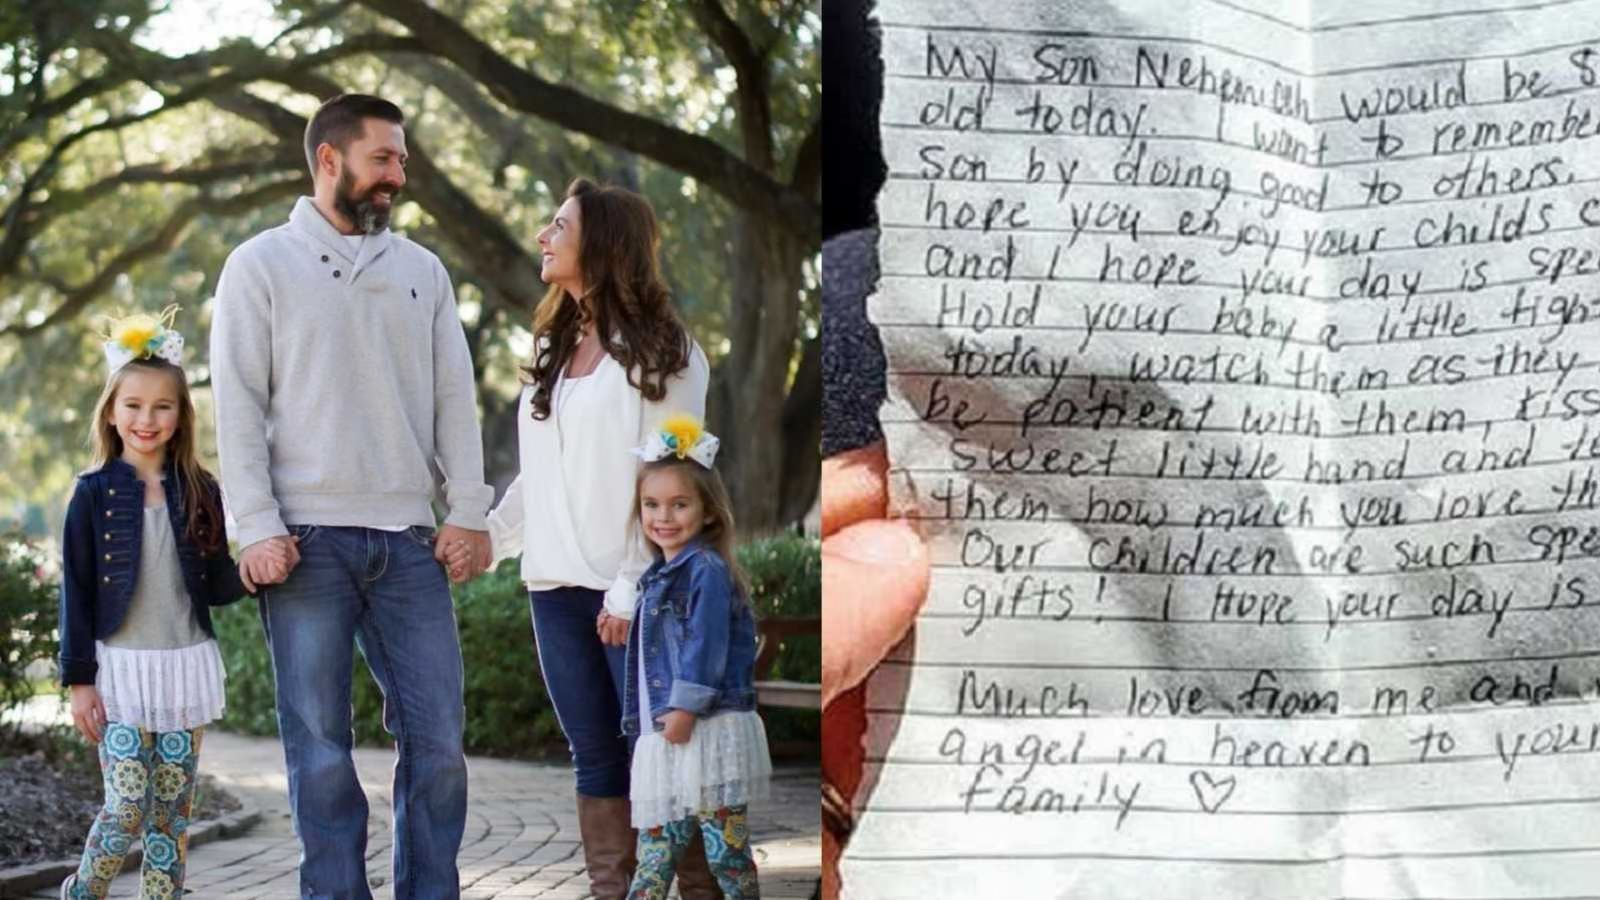 My Son Nehemiah would be
old today. I want to remember
Son by doing good to others.
hope you enjoy your childs
and I hope your day is
Hold your baby a little
today, watch them as they
be patient with them, kiss
Sweet little hand and
them how much you love
Our Children are such
gifts! I Hope your day is
Much love from me and
angel in heaven to your
family ♡